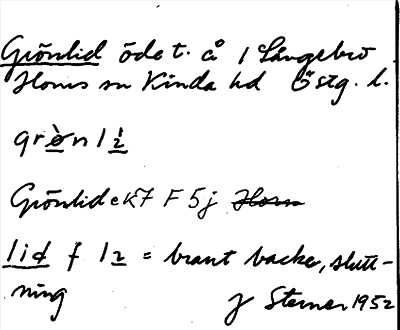 Grönlid öde t. å 1 Långebro
Horns sn Kinda hd Östg. l.
grö̀n li̇
Grönlid ek 7 F 5j Horn
lid f li = brant backe, slutt-
ning
J Sterner 1952